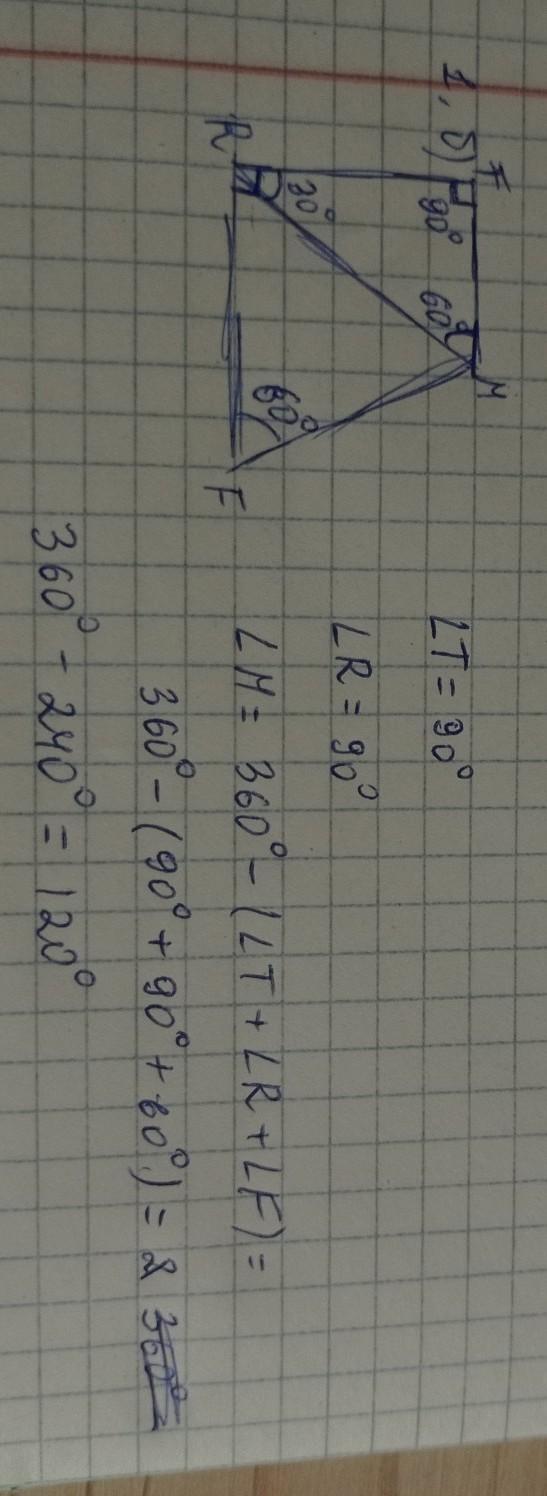 1, б)
T M
90° 60°
30°
60°
R F
∠T = 90°
∠R = 90°
∠M = 360° - (∠T + ∠R + ∠F) =
360° - (90° + 90° + 60°) =
360° - 240° = 120°